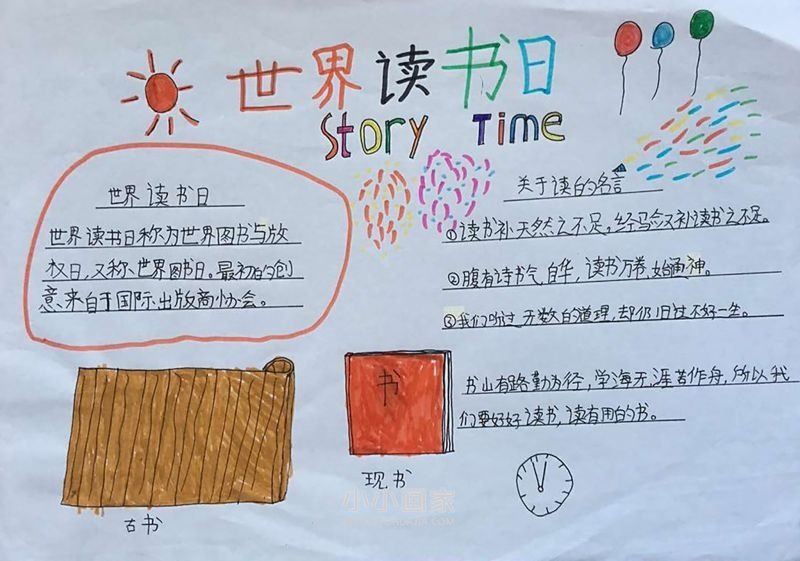 世界读书日
Story Time
世界读书日
世界读书日称为世界图书与版
权日,又称世界图书日。最初的创
意来自于国际出版商协会。
关于读的名言
①读书补天然之不足。经验又补读书之不足。
②腹有诗书气自华,读书万卷始通神。
③我们听过无数的道理,却仍旧过不好一生。
书山有路勤为径,学海无涯苦作舟,所以我
们要好好读书,读有用的书。
书
现书
古书
小小画家